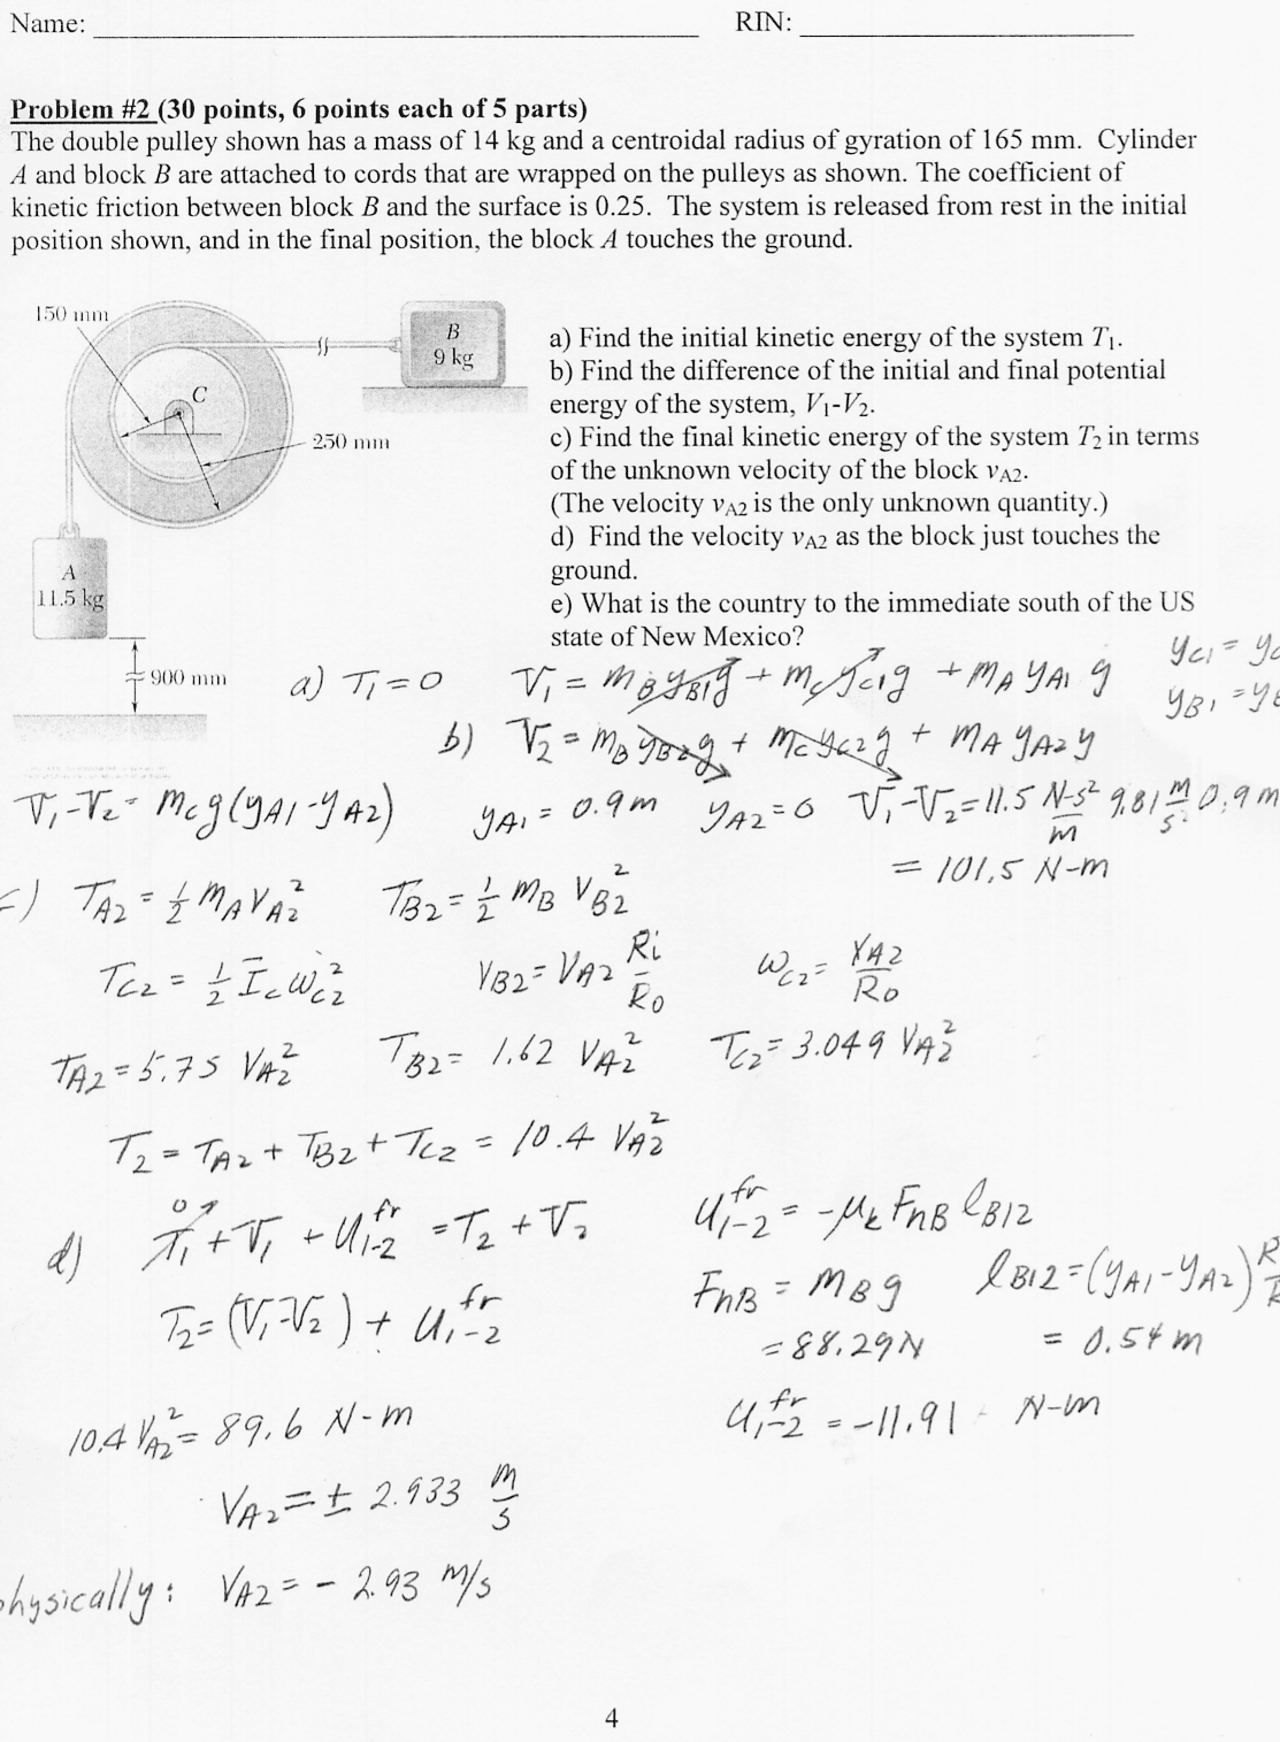 Name: RIN:
Problem #2 (30 points, 6 points each of 5 parts)
The double pulley shown has a mass of 14 kg and a centroidal radius of gyration of 165 mm. Cylinder
A and block B are attached to cords that are wrapped on the pulleys as shown. The coefficient of
kinetic friction between block B and the surface is 0.25. The system is released from rest in the initial
position shown, and in the final position, the block A touches the ground.
150 mm
C
250 mm
B
9 kg
A
11.5 kg
900 mm
a) Find the initial kinetic energy of the system T₁.
b) Find the difference of the initial and final potential
energy of the system, V₁-V₂.
c) Find the final kinetic energy of the system T₂ in terms
of the unknown velocity of the block v_A2.
(The velocity v_A2 is the only unknown quantity.)
d) Find the velocity v_A2 as the block just touches the
ground.
e) What is the country to the immediate south of the US
state of New Mexico?
a) T₁ = 0 V₁ = m_B y_B1 g + m_c y_c1 g + m_A y_A1 g y_c1 =
y_B1 =
b) V₂ = m_B y_B2 g + m_c y_c2 g + m_A y_A2 y
V₁-V₂ = m_c g (y_A1 - y_A2) y_A1 = 0.9 m y_A2 = 0 V₁-V₂ = 11.5 N-s²/m 9.81 m/s² 0.9 m
= 101.5 N-m
c) T_A2 = ½ m_A V_A2² T_B2 = ½ m_B V_B2²
T_C2 = ½ Ī_c ω_C2² V_B2 = V_A2 Ri/Ro ω_C2 = V_A2/Ro
T_A2 = 5.75 V_A2² T_B2 = 1.62 V_A2² T_C2 = 3.049 V_A2²
T₂ = T_A2 + T_B2 + T_C2 = 10.4 V_A2²
d) 0 T₁ + V₁ + U₁₋₂^fr = T₂ + V₂ U₁₋₂^fr = -μ_k F_nB l_B12
T₂ = (V₁-V₂) + U₁₋₂^fr F_nB = m_B g l_B12 = (y_A1 - y_A2)
= 88.29 N = 0.54 m
10.4 V_A2² = 89.6 N-m U₁₋₂^fr = -11.91 N-m
V_A2 = ± 2.933 m/s
physically: V_A2 = - 2.93 m/s
4